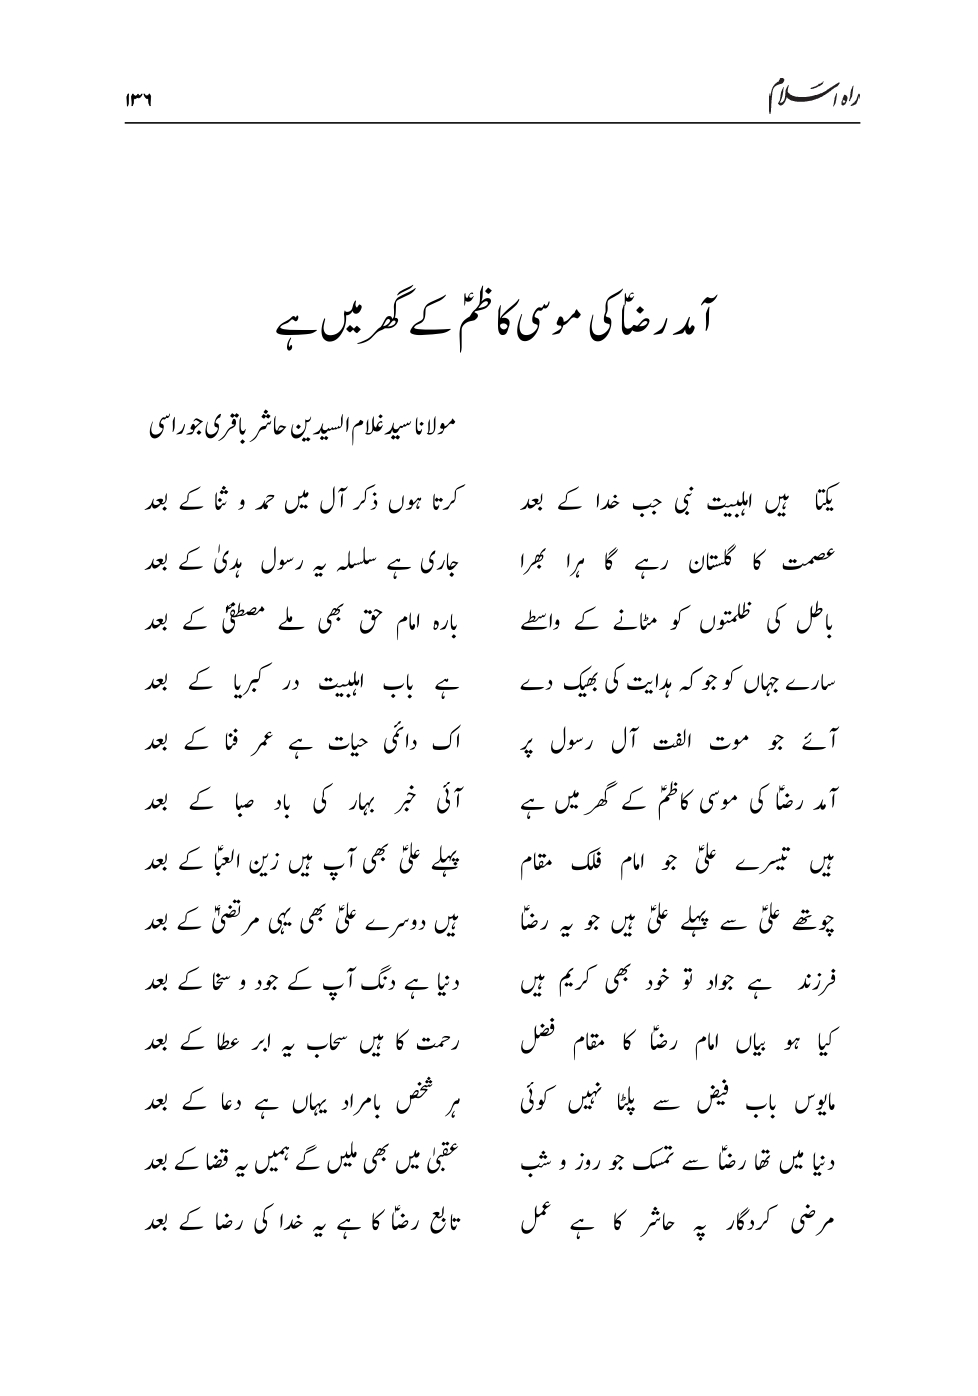 راہ اسلام ۱۳۶
آمد رضاؑ کی موسی کاظمؑ کے گھر میں ہے
مولانا سید غلام السیدین حاشر باقری جوراسی
یکتا ہیں اہلبیت نبی جب خدا کے بعد کرتا ہوں ذکر آل میں حمد و ثنا کے بعد
عصمت کا گلستان رہے گا ہرا بھرا جاری ہے سلسلہ یہ رسول ہدیٰ کے بعد
باطل کی ظلمتوں کو مٹانے کے واسطے بارہ امام حق بھی ملے مصطفیؐ کے بعد
سارے جہاں کو جو کہ ہدایت کی بھیک دے ہے باب اہلبیت در کبریا کے بعد
آئے جو موت الفت آل رسول پر اک دائمی حیات ہے عمر فنا کے بعد
آمد رضاؑ کی موسی کاظمؑ کے گھر میں ہے آئی خبر بہار کی باد صبا کے بعد
ہیں تیسرے علیؑ جو امام فلک مقام پہلے علیؑ بھی آپ ہیں زین العباؑ کے بعد
چوتھے علیؑ سے پہلے علیؑ ہیں جو یہ رضاؑ ہیں دوسرے علیؑ بھی یہی مرتضیٰؑ کے بعد
فرزند ہے جواد تو خود بھی کریم ہیں دنیا ہے دنگ آپ کے جود و سخا کے بعد
کیا ہو بیاں امام رضاؑ کا مقام فضل رحمت کا ہیں سحاب یہ ابر عطا کے بعد
مایوس باب فیض سے پلٹا نہیں کوئی ہر شخص بامراد یہاں ہے دعا کے بعد
دنیا میں تھا رضاؑ سے تمسک جو روز و شب عقبیٰ میں بھی ملیں گے ہمیں یہ قضا کے بعد
مرضی کردگار پہ حاشر کا ہے عمل تابع رضاؑ کا ہے یہ خدا کی رضا کے بعد